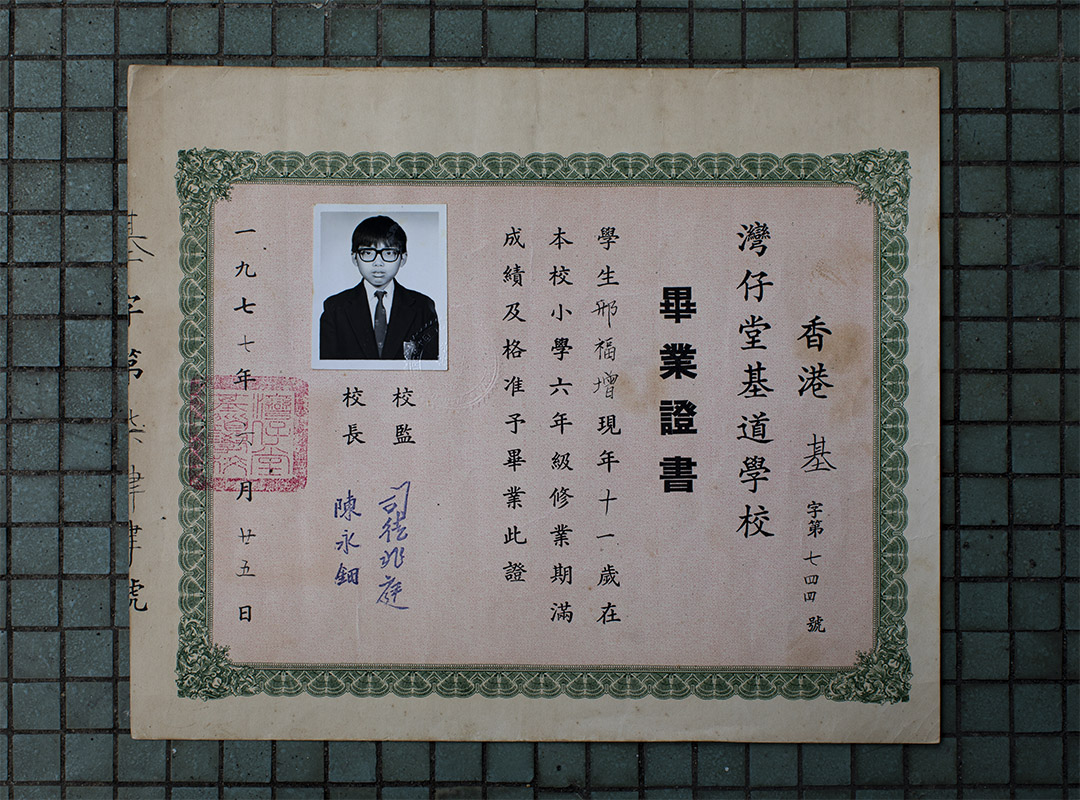 香港 基字第七四四號
灣仔堂基道學校
畢業證書
學生邢福增現年十一歲在
本校小學六年級修業期滿
成績及格准予畢業此證
校監 司徒兆庭
校長 陳永鈿
一九七七年 月廿五日
灣仔堂
基道學校